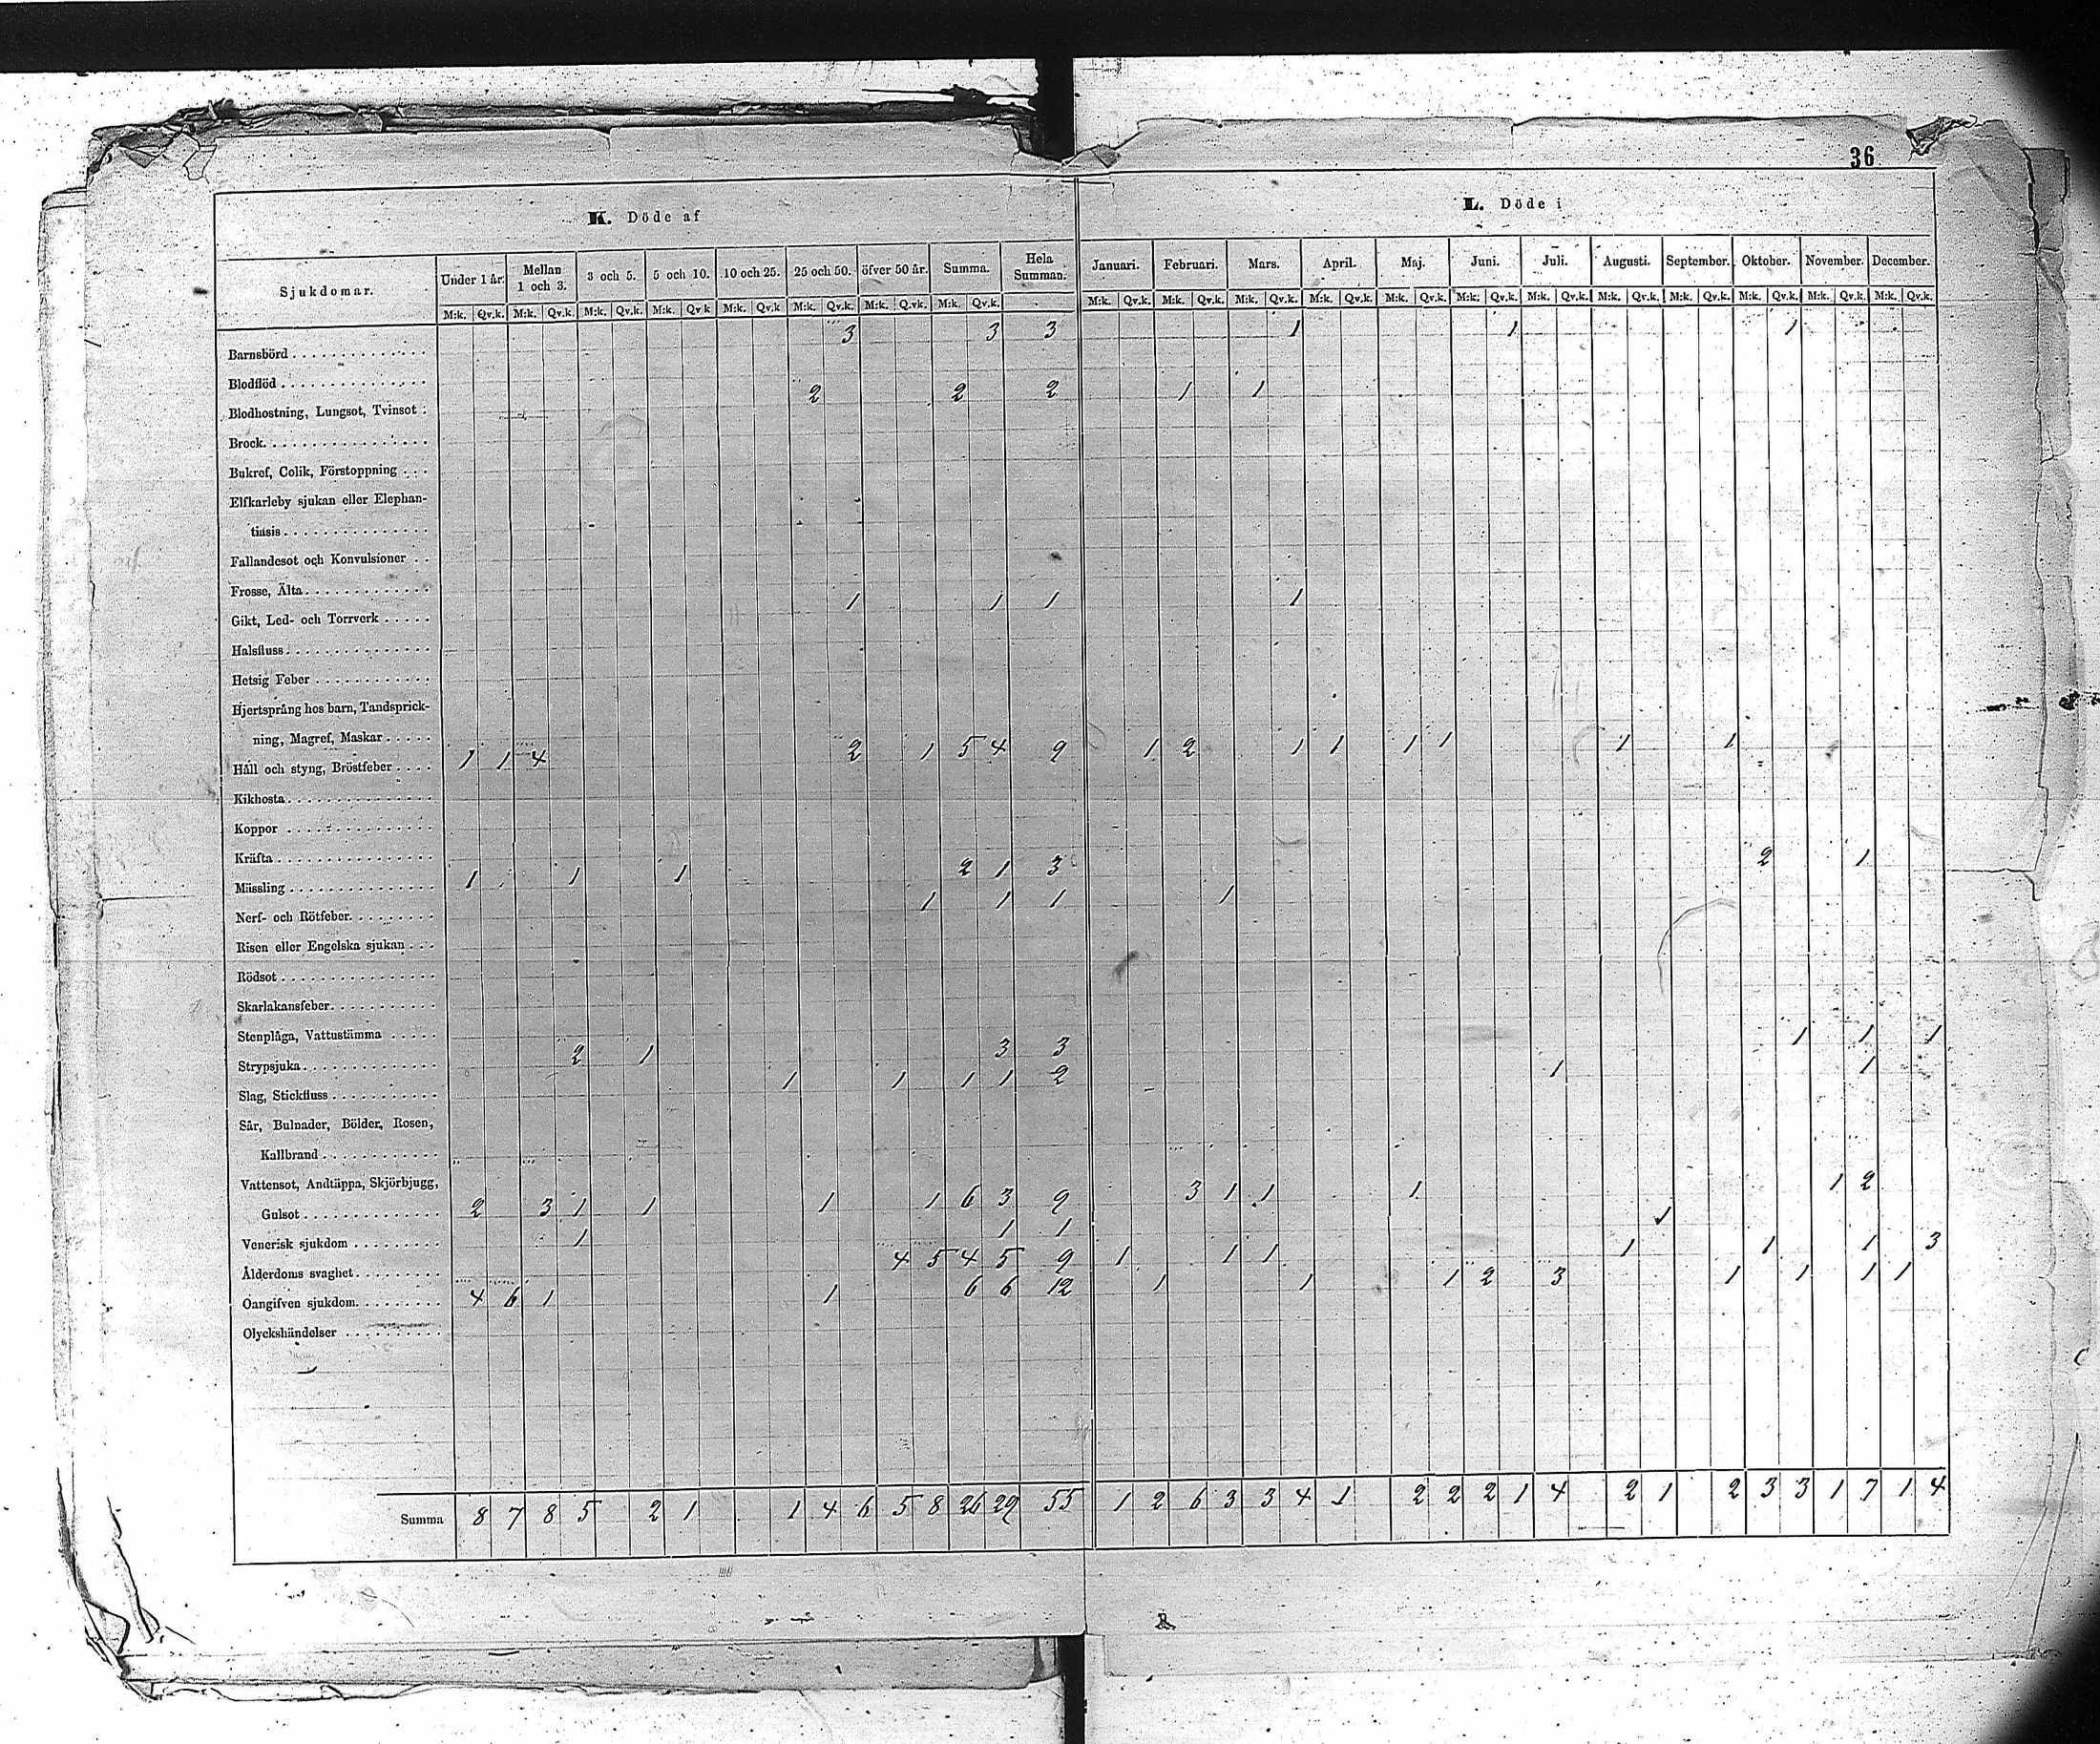 36
K. Döde af L. Döde i
Sjukdomar. Under 1 år. Mellan 1 och 3. 3 och 5. 5 och 10. 10 och 25. 25 och 50. öfver 50 år. Summa. Hela Summan. Januari. Februari. Mars. April. Maj. Juni. Juli. Augusti. September. Oktober. November. December.
M:k. Qv.k. M:k. Qv.k. M:k. Qv.k. M:k. Qv.k M:k. Qv.k M:k. Qv.k. M:k. Q.vk. M:k. Qv.k. M:k. Qv.k. M:k. Qv.k. M:k. Qv.k. M:k. Qv.k. M:k. Qv.k. M:k. Qv.k. M:k. Qv.k. M:k. Qv.k. M:k. Qv.k. M:k. Qv.k. M:k. Qv.k. M:k. Qv.k.
3 3 3 1 1 1
Barnsbörd
Blodflöd
2 2 2 1 1
Blodhostning, Lungsot, Tvinsot
Brock
Bukref, Colik, Förstoppning
Elfkarleby sjukan eller Elephan-
tiasis
Fallandesot och Konvulsioner
Frosse, Älta
1 1 1 1
Gikt, Led- och Torrverk
Halsfluss
Hetsig Feber
Hjertsprång hos barn, Tandsprick-
ning, Magref, Maskar
1 1 4 2 1 5 4 9 1 2 1 1 1 1 1 1
Håll och styng, Bröstfeber
Kikhosta
Koppor
Kräfta
1 1 1 2 1 3 2 1
Mässling
1 1 1 1
Nerf- och Rötfeber.
Risen eller Engelska sjukan
Rödsot
Skarlakansfeber
Stenplåga, Vattustämma
2 1 3 3 1 1 1
Strypsjuka
1 1 1 1 2 1 1
Slag, Stickfluss
Sår, Bulnader, Bölder, Rosen,
Kallbrand
Vattensot, Andtäppa, Skjörbjugg,
Gulsot 2 3 1 1 1 1 6 3 9 3 1 1 1 1 2
1 1 1 1
Venerisk sjukdom
4 5 4 5 9 1 1 1 1 1 1 3
Ålderdoms svaghet
4 6 1 1 6 6 12 1 1 1 2 3 1 1 1 1
Oangifven sjukdom.
Olyckshändelser
Summa 8 7 8 5 2 1 1 4 6 5 8 26 29 55 1 2 6 3 3 4 1 2 2 2 1 4 2 1 2 3 3 1 7 1 4